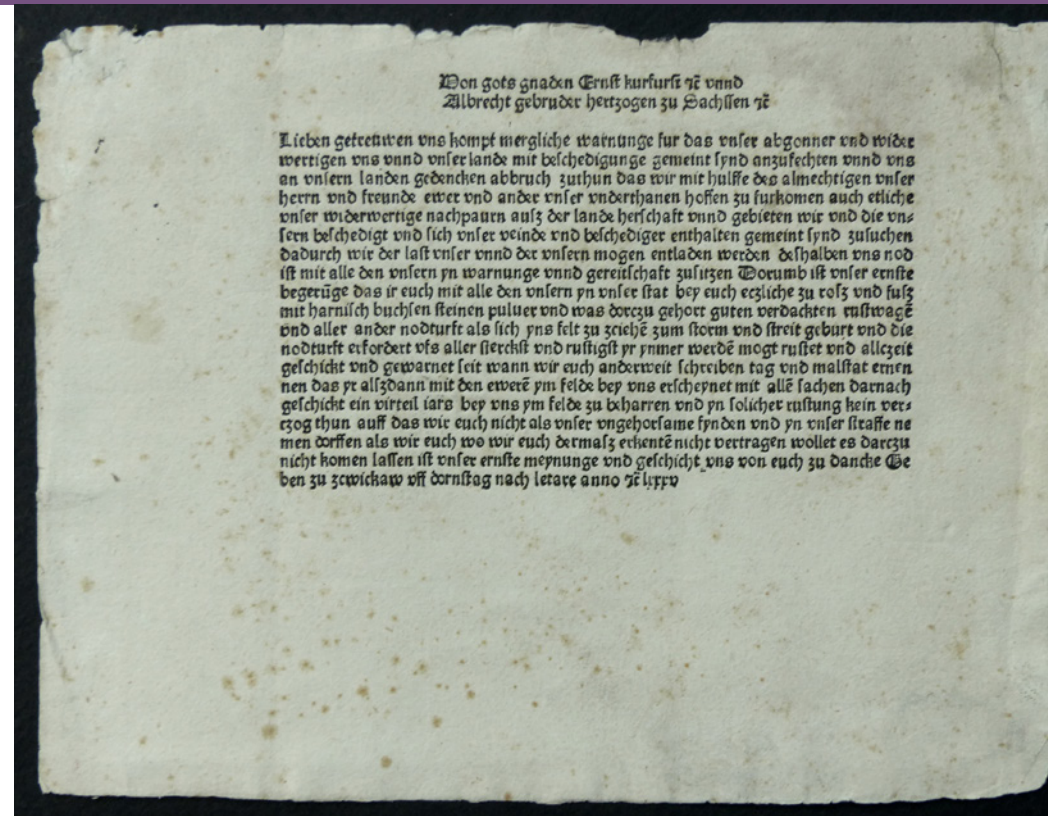 Von gots gnaden Ernst kurfurst ⁊c̄ vnnd
Albrecht gebruder hertzogen zu Sachssen ⁊c̄
Lieben getreuwen vns kompt mergliche warnunge fur das vnser abgonner vnd wider
wertigen vns vnnd vnser lande mit beschedigunge gemeint synd anzufechten vnnd vns
an vnsern landen gedencken abbruch zuthun das wir mit hulffe des almechtigen vnser
herrn vnd freunde ewer vnd ander vnser vnderthanen hoffen zu furkomen auch etliche
vnser widerwertige nachpaurn ausz der lande herschaft vnnd gebieten wir vnd die vn⸗
sern beschedigt vnd sich vnser veinde vnd beschediger enthalten gemeint synd zusuchen
dadurch wir der last vnser vnnd der vnsern mogen entladen werden deshalben vns nod
ist mit alle den vnsern yn warnunge vnnd gereitschaft zusitzen Dorumb ist vnser ernste
begerūge das ir euch mit alle den vnsern yn vnser stat bey euch eczliche zu rosz vnd fusz
mit harnisch buchsen steinen puluer vnd was dorczu gehort guten verdackten rustwagē
vnd aller ander nodturft als sich yns felt zu zciehē zum storm vnd streit geburt vnd die
nodturft erfordert vfs aller sterckst vnd rustigst yr ynmer werdē mogt rustet vnd allczeit
geschickt vnd gewarnet seit wann wir euch anderweit schreiben tag vnd malstat ernen
nen das yr alszdann mit den ewerē ym felde bey vns erscheynet mit allē sachen darnach
geschickt ein virteil iars bey vns ym felde zu beharren vnd yn solicher rustung kein ver⸗
czog thun auff das wir euch nicht als vnser vngehorsame fynden vnd yn vnser straffe ne
men dorffen als wir euch wo wir euch dermasz erkentē nicht vertragen wollet es darczu
nicht komen lassen ist vnser ernste meynunge vnd geschicht vns von euch zu dancke Ge
ben zu zcwickaw vff dornstag nach letare anno ⁊c̄ lxxxv